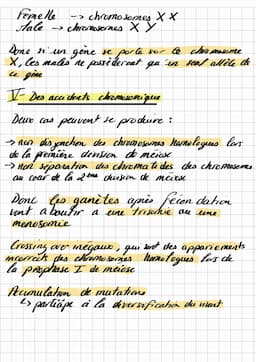 Femelle -> chromosomes X X
Male -> chromosomes X Y
Donc si un gène se porte sur le chromosome
X, les males ne possèderont qu'un seul allèle de
ce gène
V - Des accidents chromosomiques
Deux cas peuvent se produire :
-> non disjonction des chromosomes homologues lors
de la première division de méiose
-> non séparation des chromatides des chromosomes
au cour de la 2ème division de méiose
Donc les gamètes après fécondation
vont aboutir a une trisomie ou une
monosomie
Crossing over inégaux, qui sont des appariements
incorrects des chromosomes homologues lors de
la prophase I de méiose
Accumulation de mutations
↳ participe à la diversification du vivant